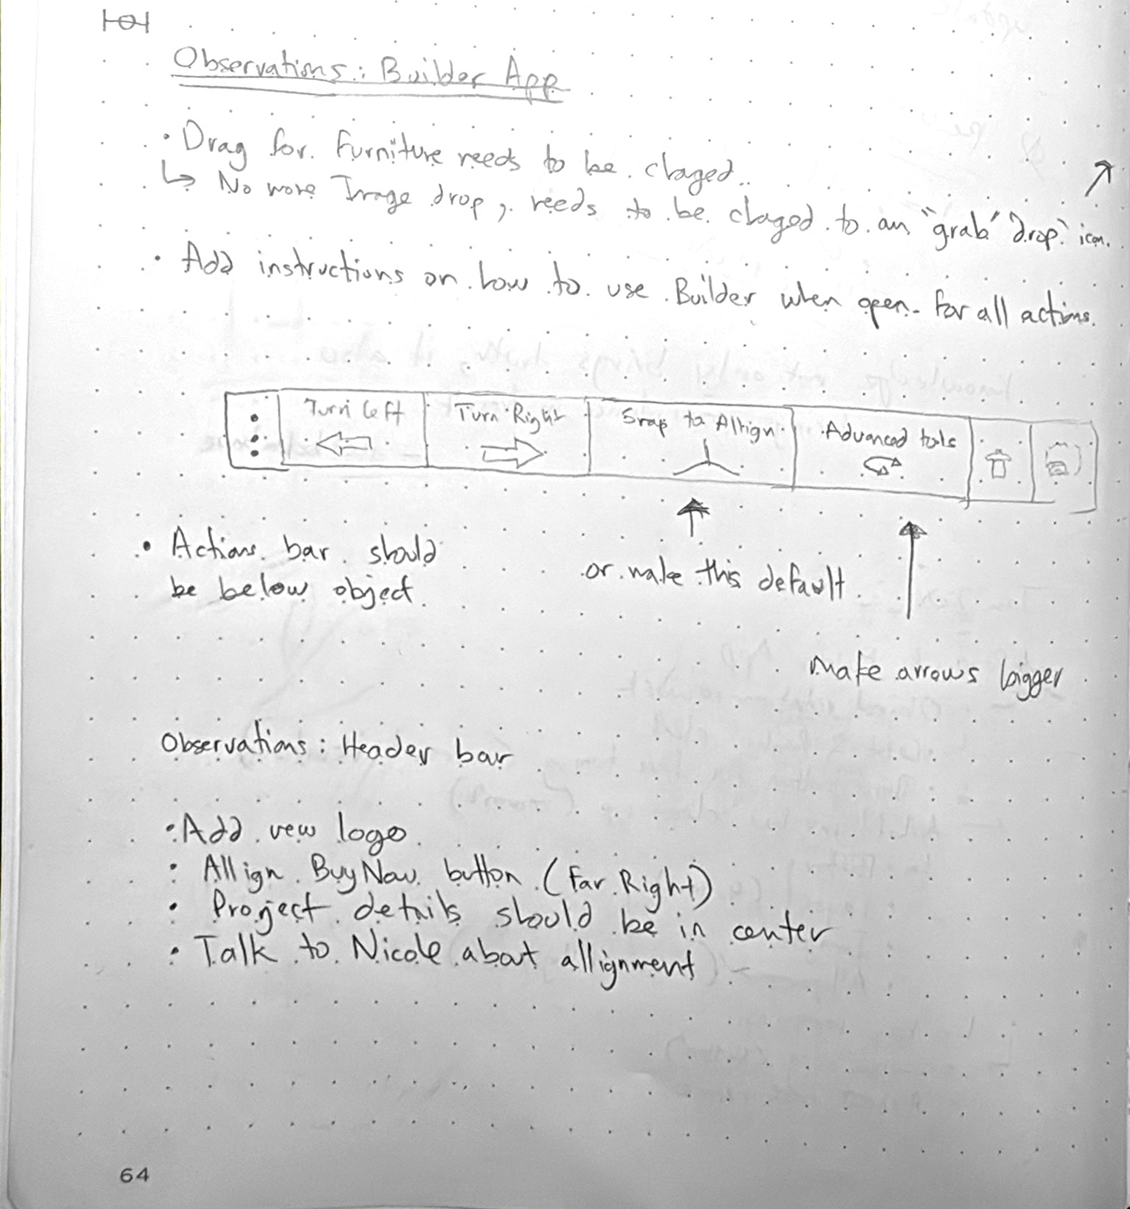 Observations: Builder App
• Drag for furniture needs to be chaged.
↳ No more Image drop, needs to be chaged to an "grab" drop icon.
• Add instructions on how to use Builder when open for all actions.
Turn Left
Turn Right
Snap to Allign
Advanced tools
• Actions bar should
be below object.
or make this default
make arrows bigger
Observations: Header bar
• Add new logo
• Allign Buy Now button (Far Right)
• Project details should be in center
• Talk to Nicole about allignment
64